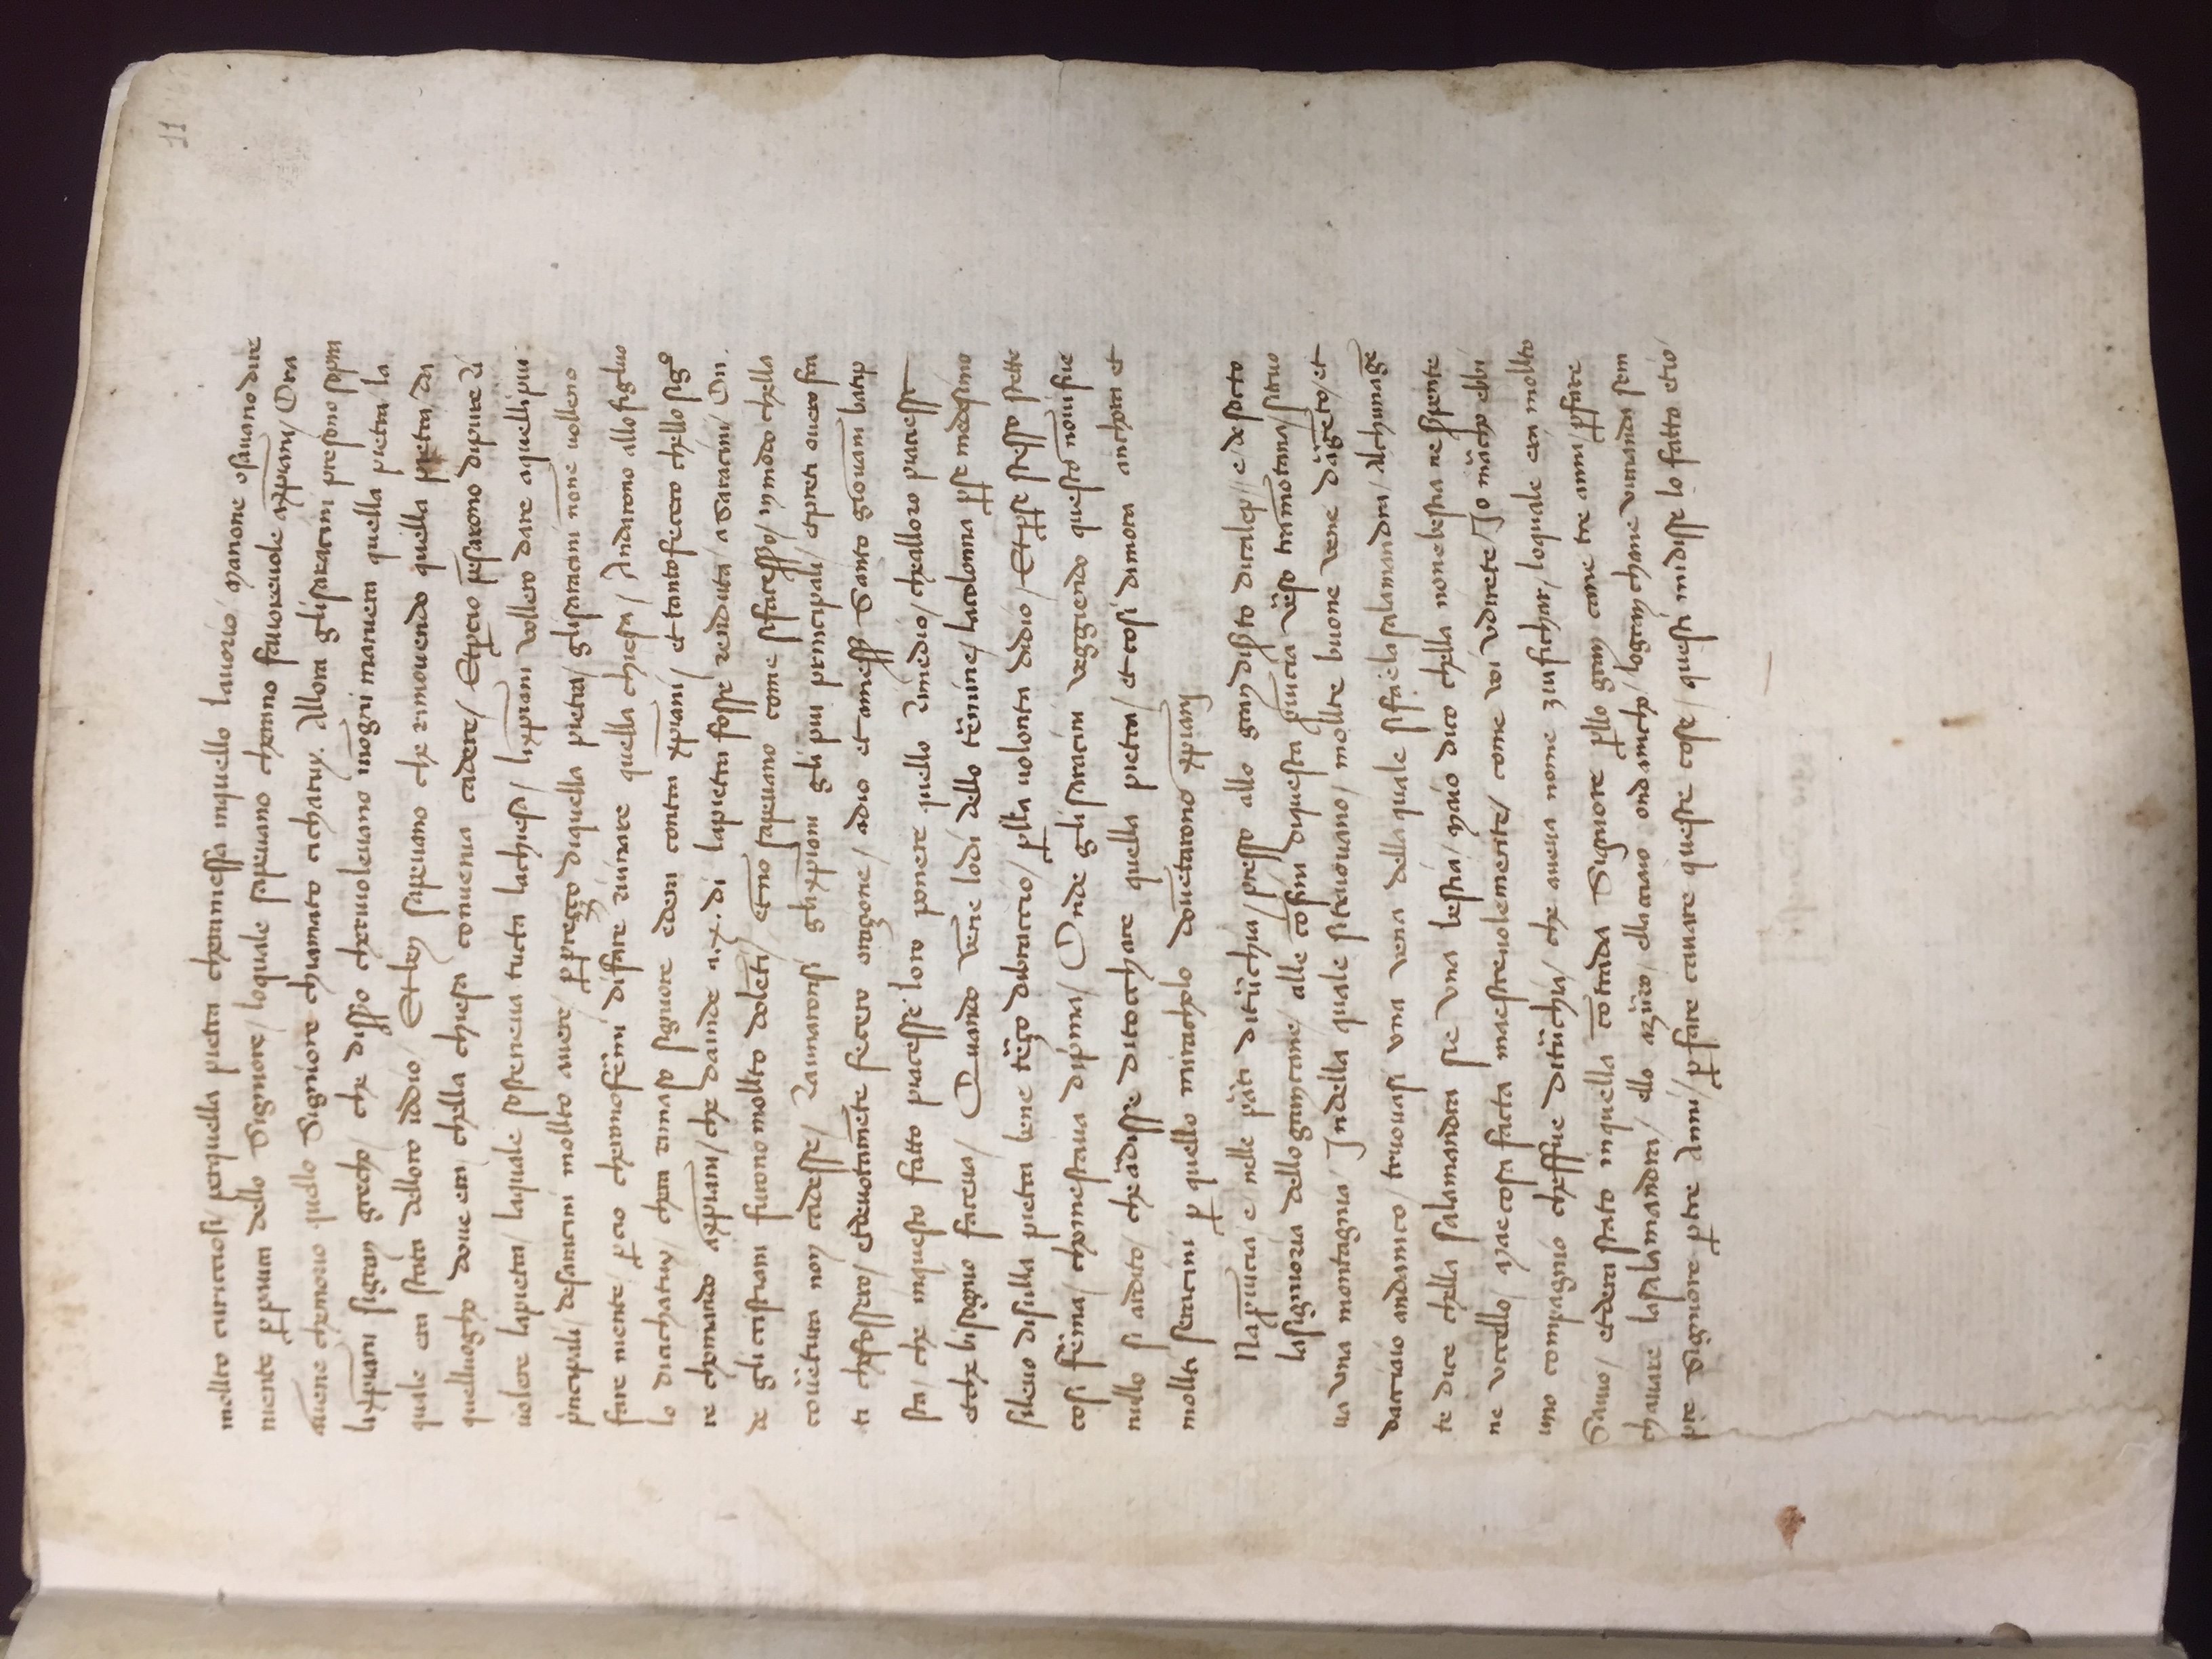 11
mollto curicciosi / perquella pietra cheramessa inquello lauorio / Manone osauano dire
niente p̱ paura dello Signiore / loquale sapeuano cherano fauoreuole axp̄iani / Ora
auēne chemorio quello Signiore chiamato cichatuy. Allora glisaracini presono sopra
lixp̄iani sigran grecho / che disso͂ chervioleuano inōgni maniera quella pietra / la
quale era stata delloro iddio / Et ben sapeuano che rimouendo quella pietra / da
quelluogho doue era / chella chiesa conuenia cadere / Etp̱cio pēsarono dipure ri
uolere lapietra / laquale sosteneua tucta lachiesa / lixp̄iani vollero dare aquelli piu
p̍ncipali / desaracini mollto auere / p̱ prezzo diquella pietra / glisaracini nōne uolleno
fare niente / p̱ cio cheranofe͂mi difare ruinare quella chiesa / Andarono allo figluo
lo dicichatuy / chera rimaso signiore edera contra xp̄iani / et tantofecero chello sigº
re chomando axp̄iani / che dainde a .x. di lapietra fosse renduta / a saracini / On
de gli cristiani furono mollto dolēti / et nō sapeuano come sifacesso͂ / in modo chella
coue͂tura non cadesse / Raunaronsi glixp̄ioni gli piu principali / et preti ouero fra
ti chefossero / et deuotamēte fecero orazone / adio et amess͂ Santo giouāni batip
sta / che inquesto fatto piacesse loro ponere quello Rimedio / chealloro piaciesse
et che bisognio faceua / Quando vēne lodi dello te͂mine / lacolonna p̱se medesimo
sileuo disulla pietra bene te͂zo dibraccio / p̱lla volonta didio / Et p̱se stesso stette
cosi fe͂ma / chomestaua dip̍ma / Onde glisaracini veggiendo questo nōui fue
nullo si ardito / che a͂disse ditocchare quella pietra / et cosi dimora anchora et
mollti seracini p̱ quello miracholo douētarono xp̄iani
Na p̱uīcia / e / nelle pa͂ti ditu͂chia / presso allo gran dis͂to dicalep // e / desocto
lasignioria dello grancane / alle cōfini diquesta p̱uīcia ve͂so tramōtana / sitruo
ua Una montagnia / Indella quale sitruouano / mollte buone vene da͂gēto / et
dacciaio andanico / truouasi una vena della quale sifae la salamandra / Alchunagē
te dice chella salamandra sie Una bestia / Maio dico chella nonebestia ne s͂pente
ne uccello / Mae cosa facta maestreuolemente / come voi udirete / Io ma͂cho ebbi
uno compagnio cheffue ditu͂chia / che aueua nome ziufichar / loquale era mollto
Sauio / et dera stato inquella cōtrada Signiore p̱llo gran cane tre anni / p̱fare
chauare lasalamandra / ello azu͂ro / ellacciaio ondanicho / logran chane vimanda sem
pre Signiore p̱ tre Anni / p̱ fare cauare queste cose / questi midisse lo fatto etio